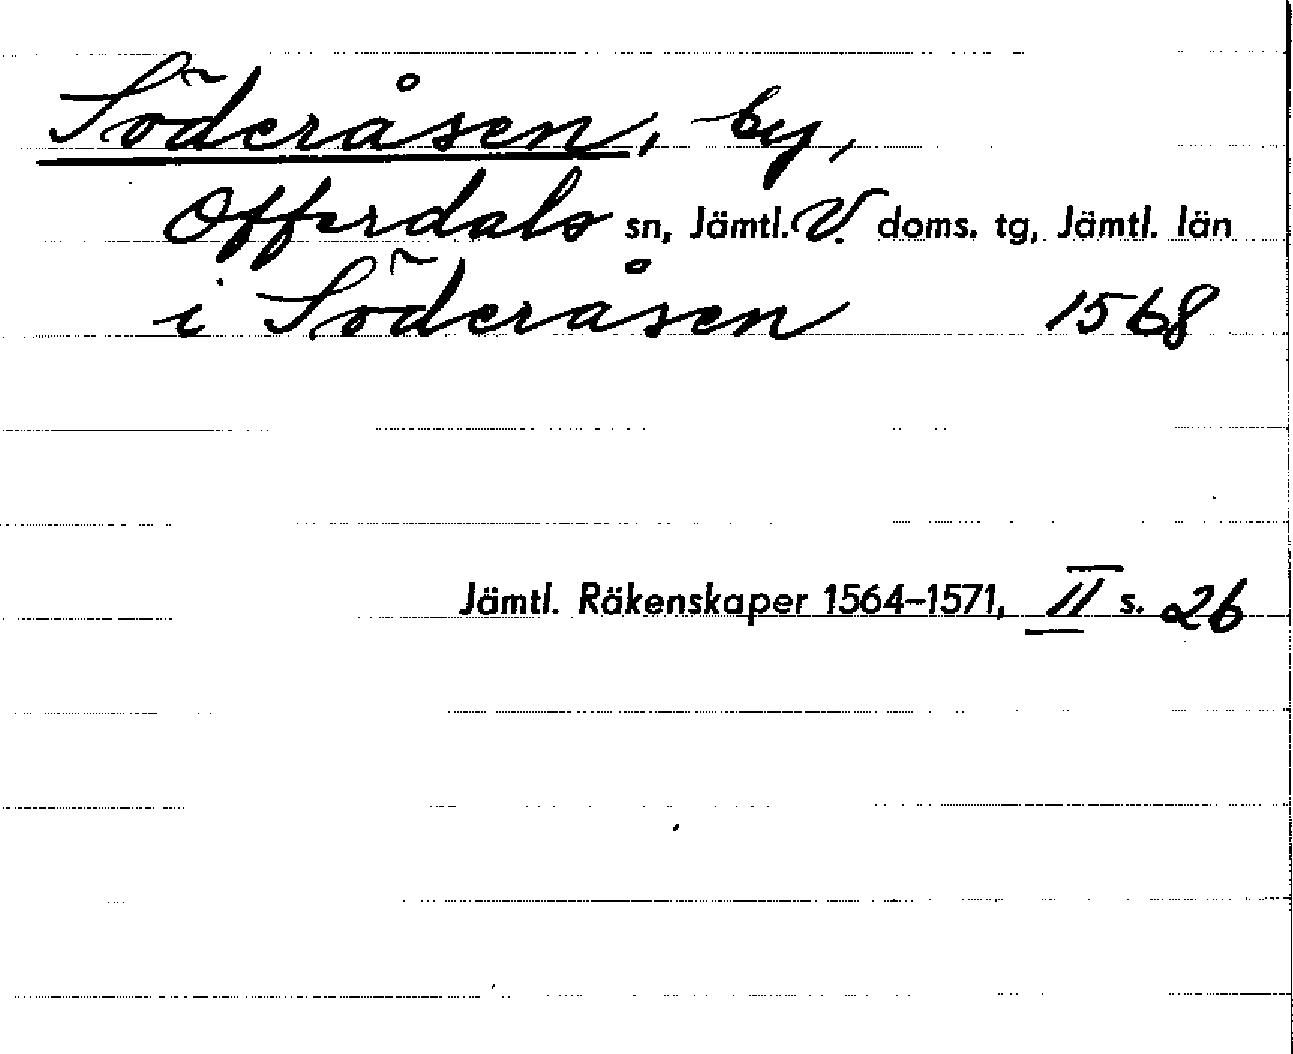 Söderåsen, by,
Offerdals sn, Jämtl. V. doms. tg, Jämtl. län
i Söderåsen 1568
Jämtl. Räkenskaper 1564–1571, II s. 26